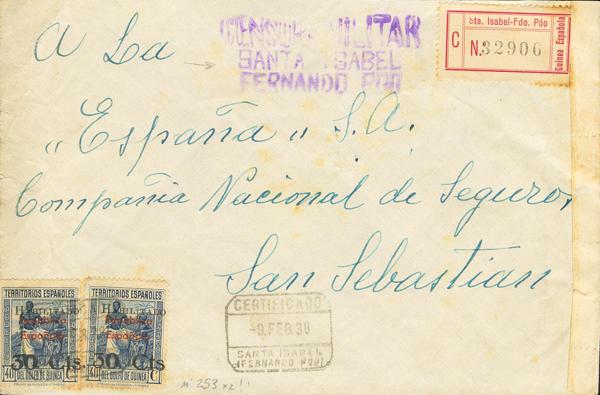 A La
CENSURA MILITAR
SANTA ISABEL
FERNANDO POO
C
Sta. Isabel-Fdo. Póo
N.32906
Guinea Española
"España" S.A.
Compañia Nacional de Seguros,
San Sebastian
TERRITORIOS ESPAÑOLES
HABILITADO
República
Española
30 Cts.
40 Cs
DEL GOLFO DE GUINEA
TERRITORIOS ESPAÑOLES
HABILITADO
República
Española
30 Cts
40 Cs
DEL GOLFO DE GUINEA
CERTIFICADO
-9.FEB.38
SANTA ISABEL
(FERNANDO POO)
nº 253 x2!!